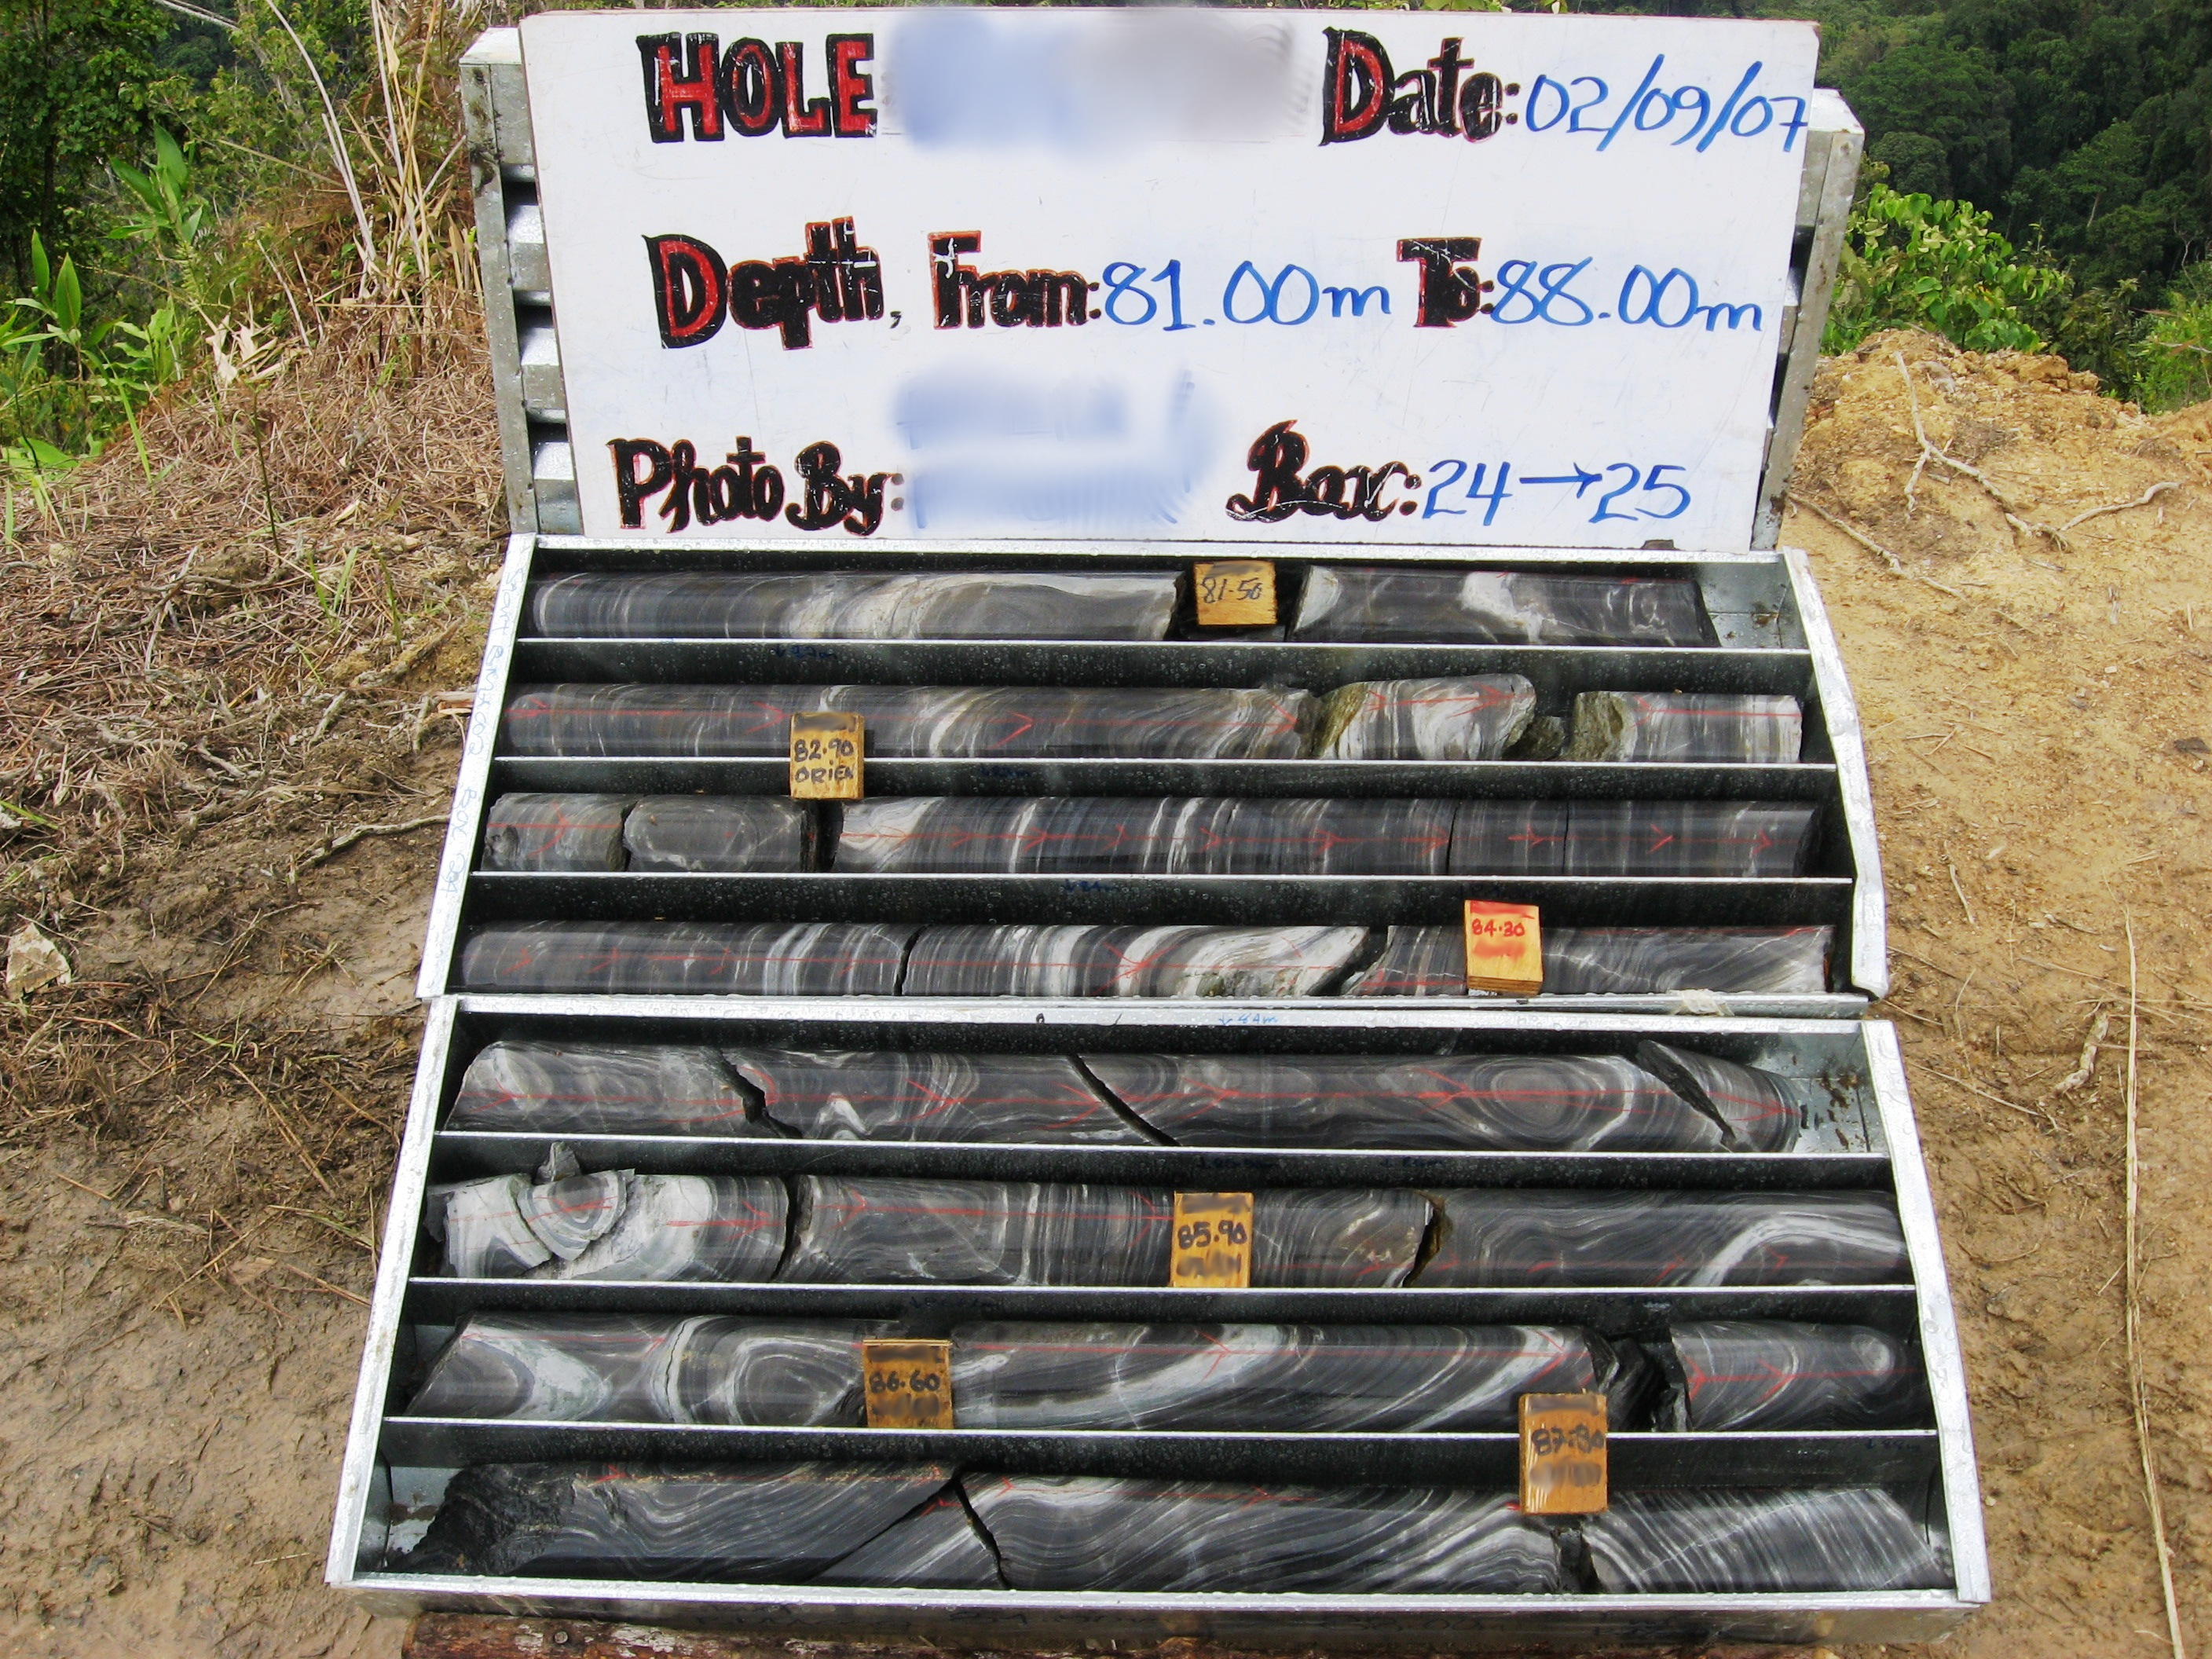 HOLE Date: 02/09/07
Depth, From: 81.00m To: 88.00m
Photo By: Box: 24→25
81.50
82.90
ORIEN
84.30
85.90
86.60
87.30